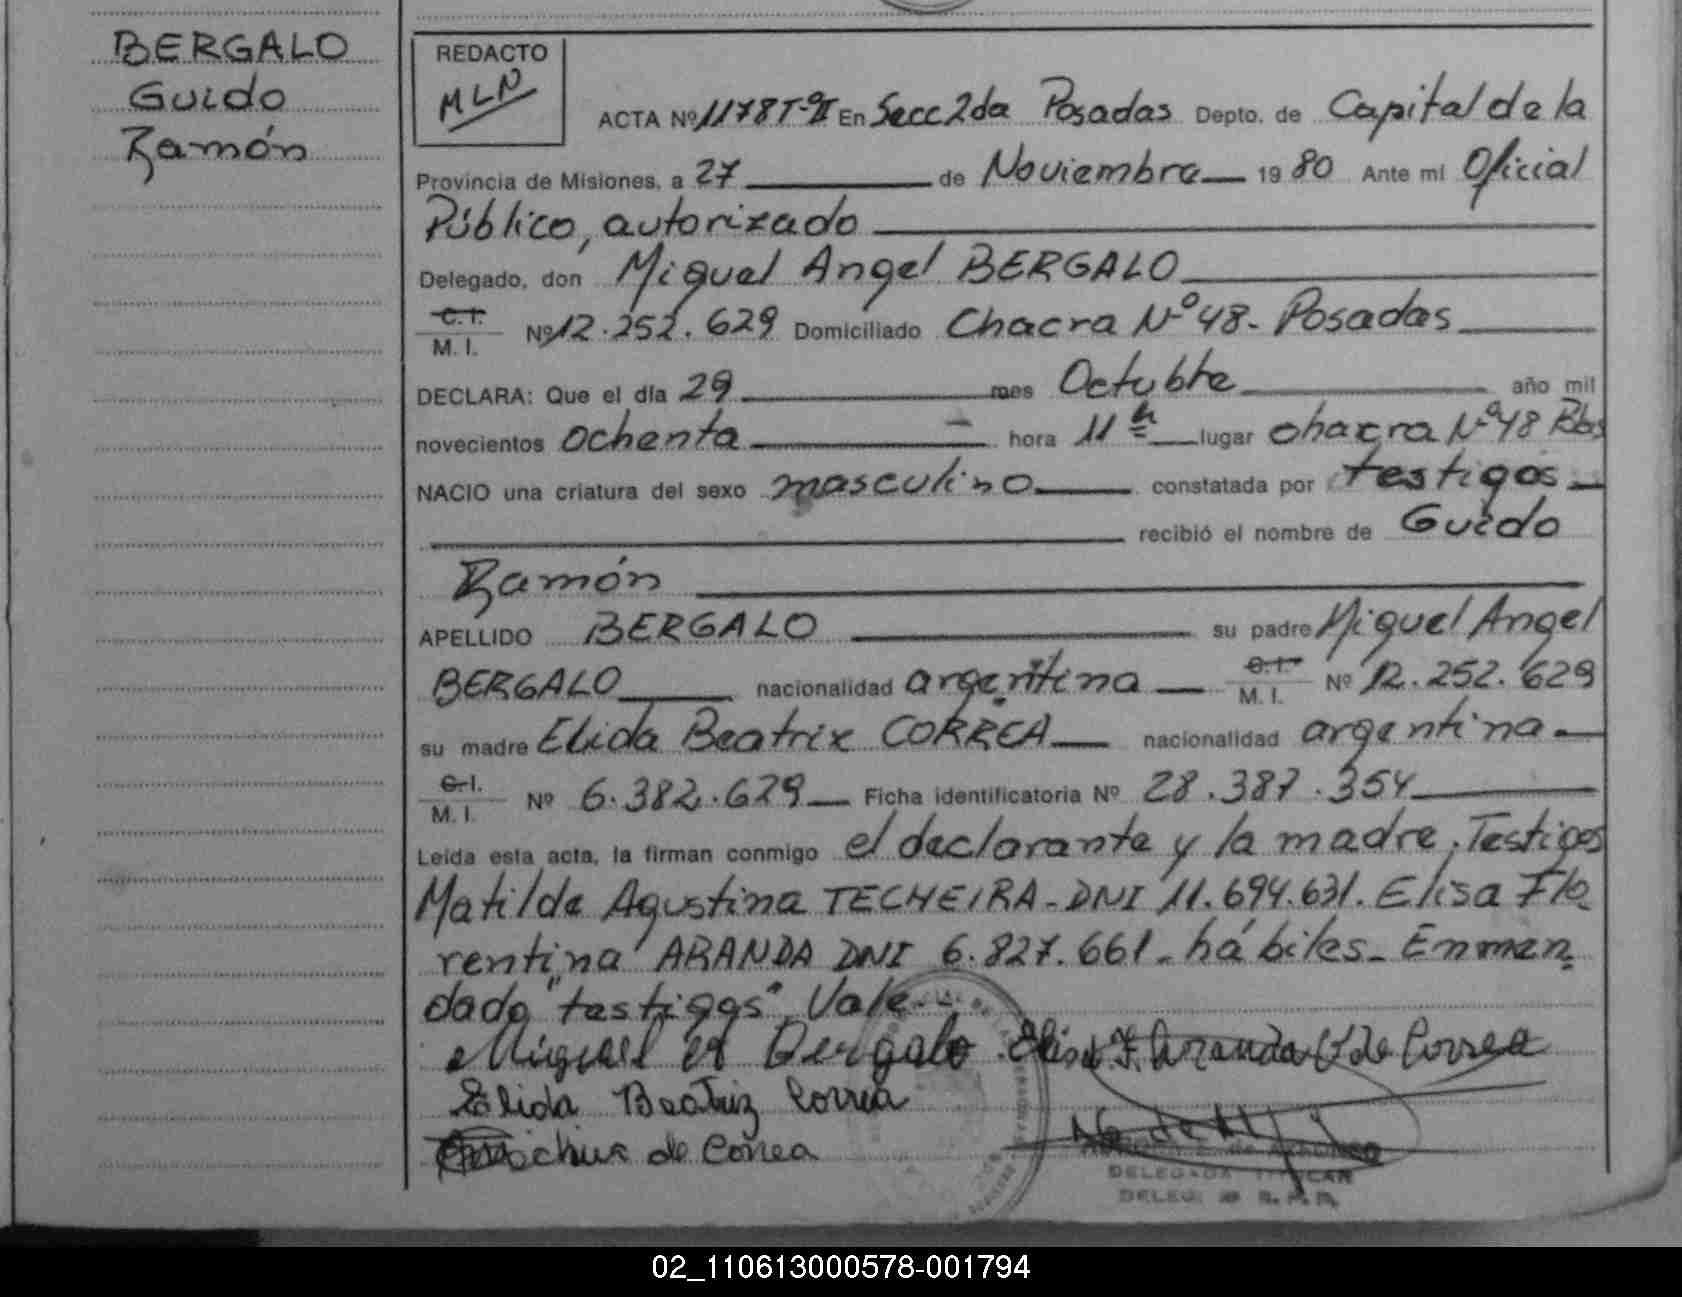 BERGALO
Guido
Ramón
REDACTO
MLN
ACTA Nº 1178 Tº II En Secc 2da Posadas Depto. de Capital de la
Provincia de Misiones, a 27 de Noviembre 19 80 Ante mi Oficial
Público, autorizado
Delegado, don Miguel Angel BERGALO
C. I.
M. I. Nº 12.252.629 Domiciliado Chacra Nº 48 - Posadas
DECLARA: Que el día 29 mes Octubre año mil
novecientos ochenta hora 11 h lugar chacra Nº 48 Pdas
NACIO una criatura del sexo masculino constatada por testigos
recibió el nombre de Guido
Ramón
APELLIDO BERGALO su padre Miguel Angel
BERGALO nacionalidad argentina C. I. M. I. Nº 12.252.629
su madre Elida Beatriz CORREA nacionalidad argentina
C. I.
M. I. Nº 6.382.629 Ficha identificatoria Nº 28.387.354
Leída esta acta, la firman conmigo el declarante y la madre. Testigos
Matilde Agustina TECHEIRA - DNI 11.694.631. Elisa Flo
rentina ARANDA DNI 6.827.661 - hábiles - Enmen
dado "testigos" Vale -
Miguel A Bergalo Elisa F. Aranda de Correa
Elida Beatriz Correa
de Correa
DELEGADA TITULAR
02_110613000578-001794